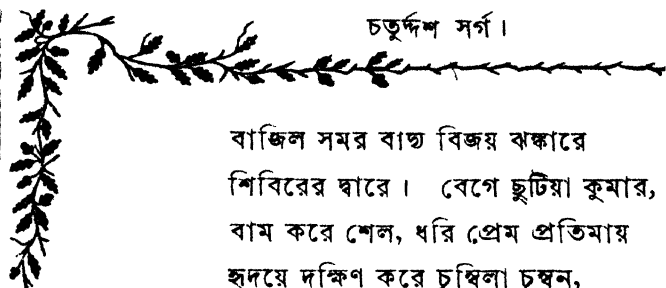 চতুর্দ্দশ সর্গ।
বাজিল সমর বাদ্য বিজয় ঝঙ্কারে
শিবিরের দ্বারে। বেগে ছুটিয়া কুমার,
বাম করে শেল, ধরি প্রেম প্রতিমায়
হৃদয়ে দক্ষিণ করে চুম্বিলা চুম্বন,